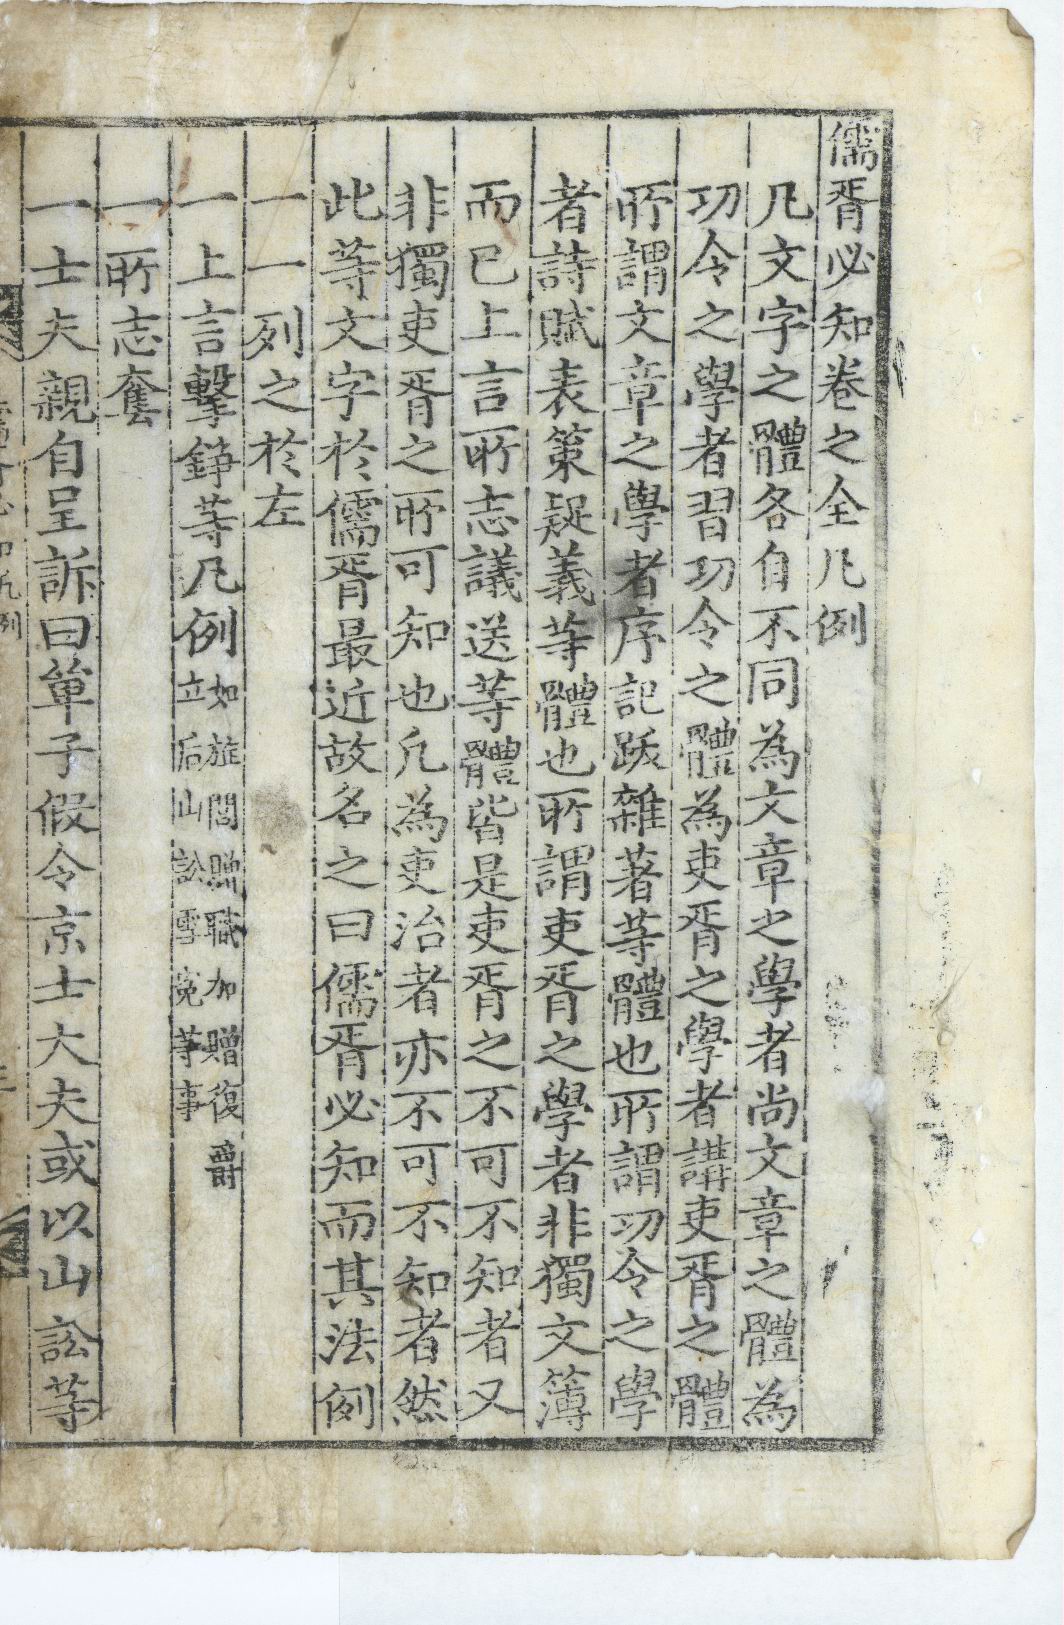 儒胥必知卷之全凡例
凡文字之體各自不同為文章之學者尚文章之體為
功令之學者習功令之體為吏胥之學者講吏胥之體
所謂文章之學者序記跋雜著等體也所謂功令之學
者詩賦表策疑義等體也所謂吏胥之學者非獨文簿
而已上言所志議送等體皆是吏胥之不可不知者又
非獨吏胥之所可知也凡為吏治者亦不可不知者然
此等文字於儒胥最近故名之曰儒胥必知而其法例
一一列之於左
一上言擊錚等凡例如旌閭贈職加贈復爵
立后山訟雪冤等事
一所志套
一士夫親自呈訴曰單子假令京士大夫或以山訟等